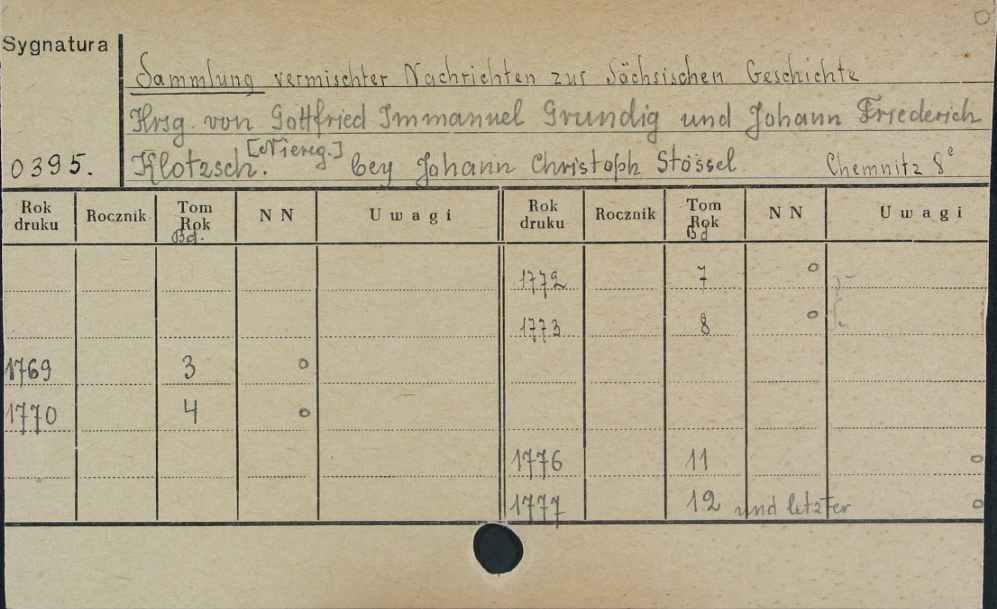 Sygnatura
Sammlung vermischter Nachrichten zur Sächsischen Geschichte
Hrsg. von Gottfried Immanuel Grundig und Johann Friederich
0395. Klotzsch. [Niereg.] bey Johann Christoph Stössel. Chemnitz 8°
Rok druku Rocznik Tom Rok Bd. NN Uwagi Rok druku Rocznik Tom Rok Bd NN Uwagi
1772 7 o
1773 8 o
1769 3 o
1770 4 o
1776 11 o
1777 12 und letzter o